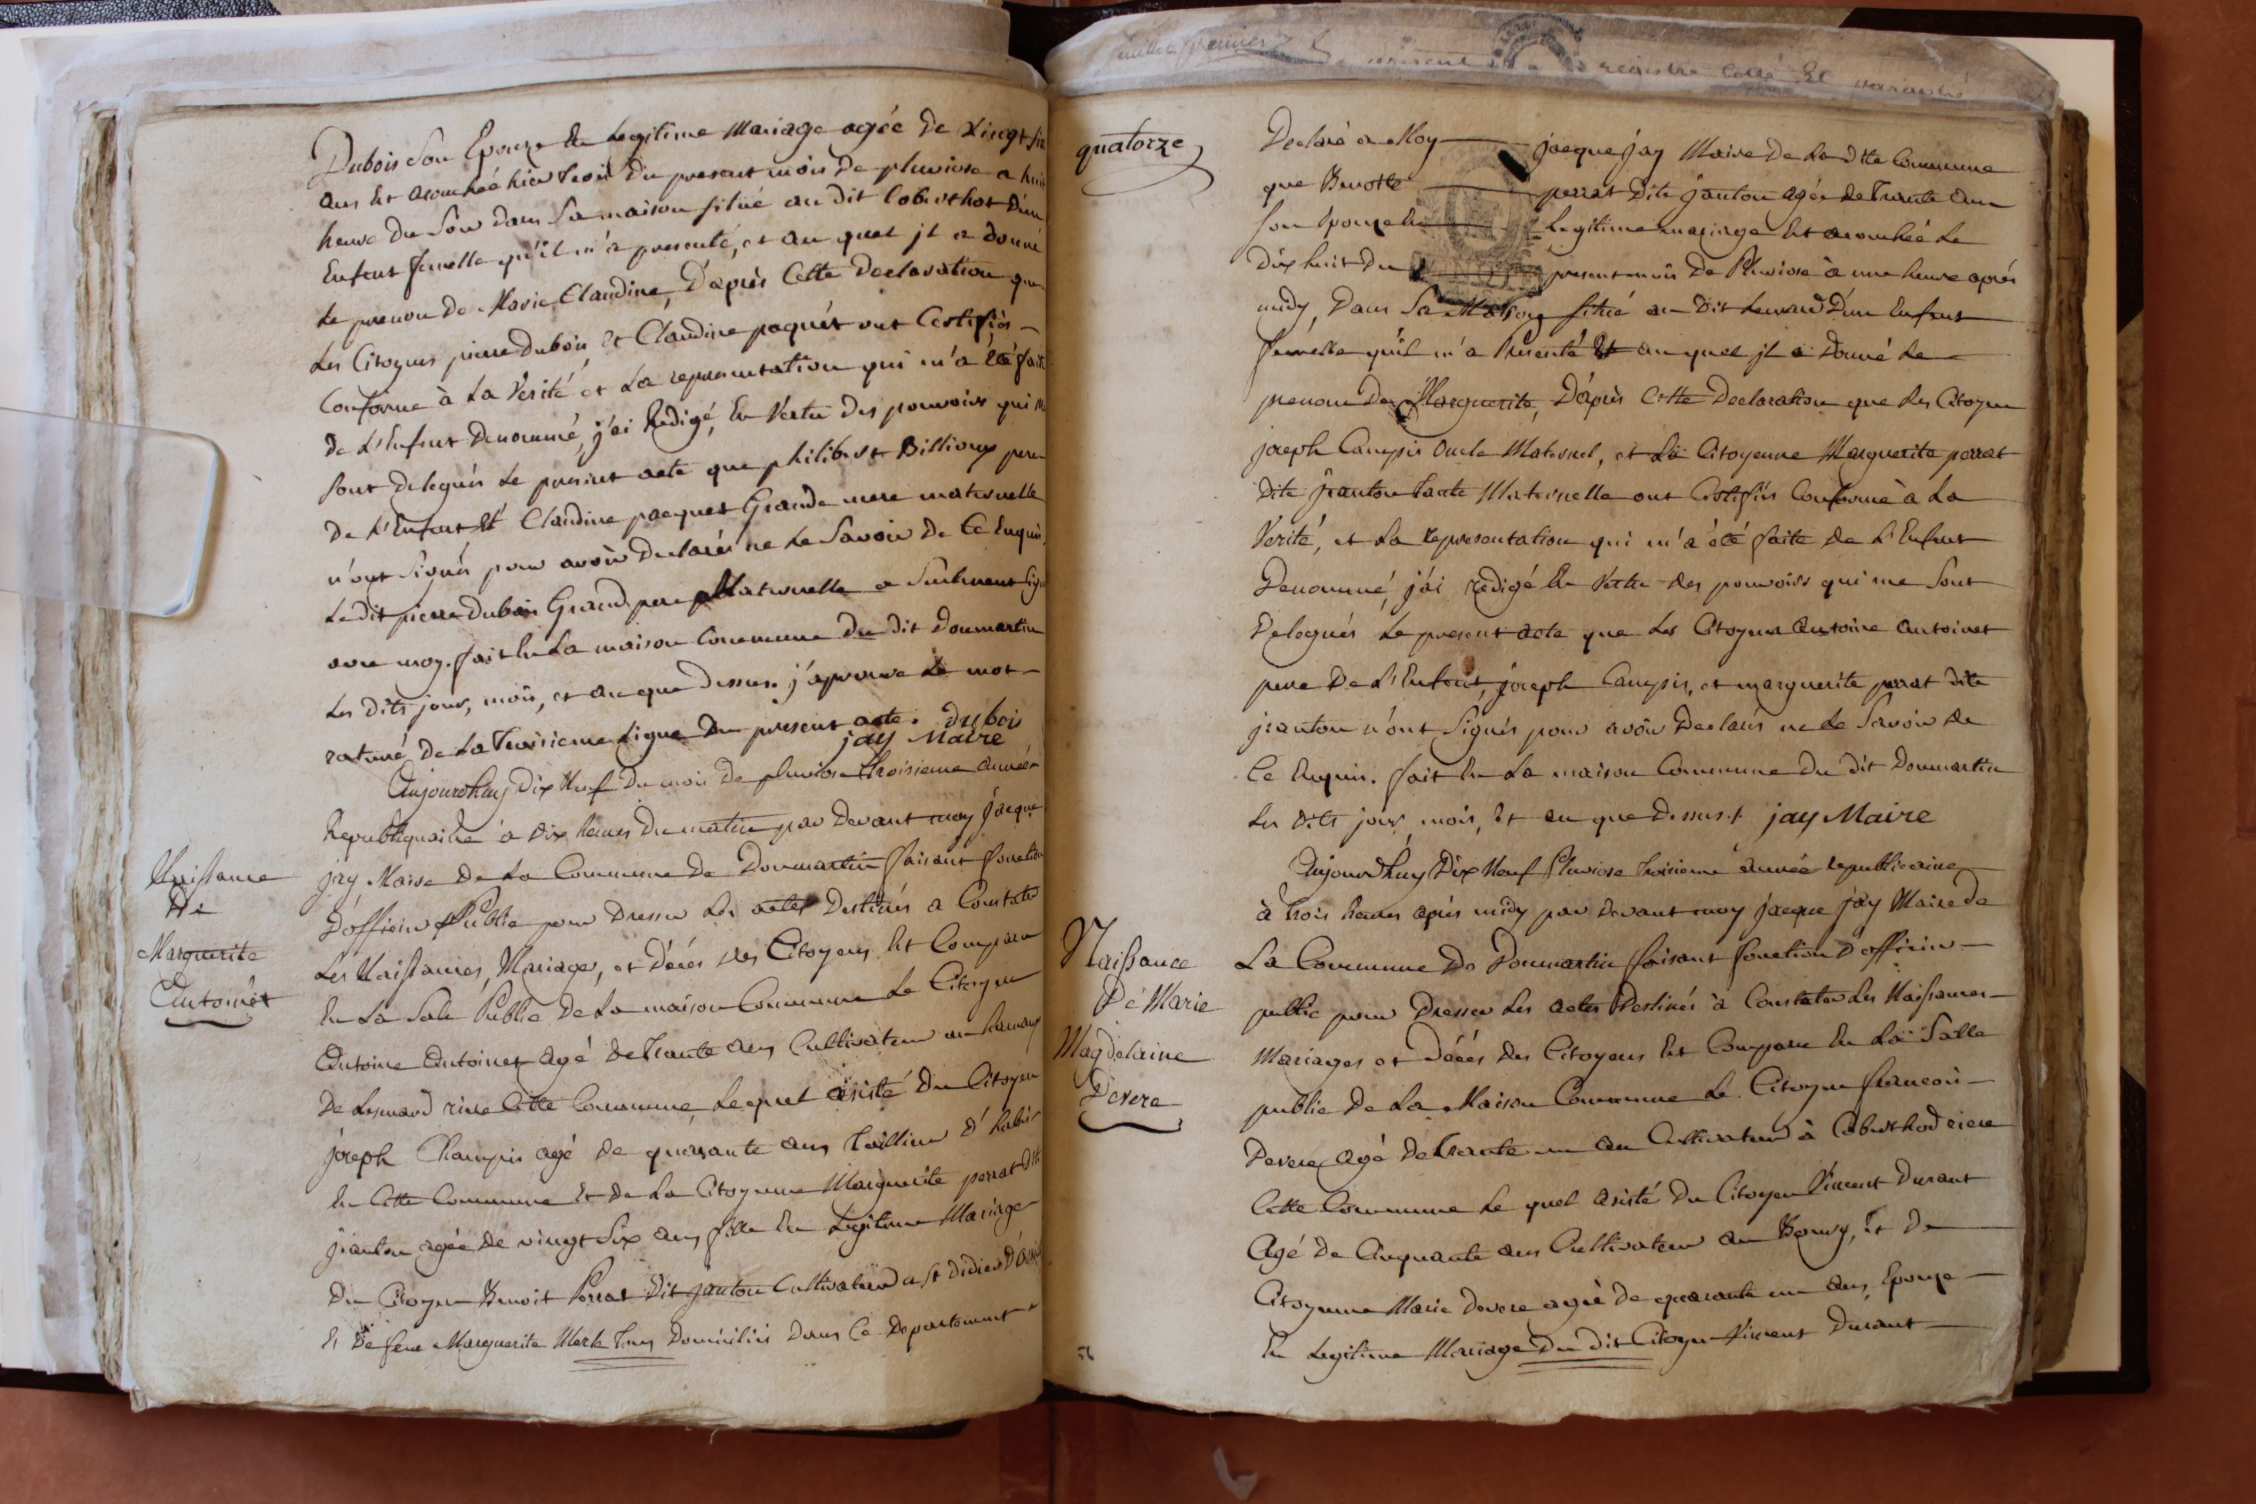 Dubois Son Epouze En Legitime Mariage agée De Vingt six
ans Est acouchée hier trois Du present mois De pluviose a huit
heure Du Soir dans Sa maison situé au dit Coberthot D'un
Enfent femelle qu'il m'a presenté, et au quel jl a donné
Le prenom De Marie Claudine, D'après Cette Declaration que
Les Citoyens pierre Dubois Et Claudine paquet ont Certifiés
Conforme à La Verité et La representation qui m'a Eté faite
de L'Enfent Denommé, j'ai Redigé, En Vertu Des pouvoirs qui me
Sont Delegués Le present acte que philibert Billioux pere
De L'Enfent Et Claudine pacquet Grande mere maternelle
n'ont Signés pour avoir Declarés ne Le Savoir De Ce Enquis,
Le dit pierre Dubois Grand pere Maternelle a Seulement Signé
avec moy. fait En La maison Commune Du dit Dommartin
Les Dits jour, mois, et an que Dessus. j'aprouve Le mot
raturé De La Troisieme Ligne Du present acte. Dubois
jay Maire
Aujourdhuy Dix Neuf Du mois De pluviose Troisieme année
Republiquaine à Dix heures Du matin par Devant moy jacque
jay Maire De La Commune De Dommartin faisant fonction
D'officier Public pour Dresser Les actes Destinés a Constater
Les Naissances, Mariages, et Décés Des Citoyens Est Comparu
En La Sale Public De La maison Commune Le Citoyen
Antoine Antoinet Agé De Trante ans Cultivateur au hameau
De Lesnard riere Cette Commune Lequel assisté Du Citoyen
joseph Champis agé de quarante ans Taillieur d'habit
En Cette Commune Et De La Citoyenne Marguerite perrat dite
jeanton agée De vingt Six ans fille En Legitime Mariage
Du Citoyen Benoit Perrat Dit janton Cultivateur a St Didier
Et De feue Marguerite Merle Tous Domiciliés Dans Ce Departement
Naissance
De
Marguerite
Antoinet
quatorze
Declaré a Moy jacque jay Maire De La dite Commune
que Benoite perrat Dite janton agée De Trante ans
Son Epouze En Legitime mariage Est acouchée Le
Dix huit Du present mois De Pluviose à une heure aprés
midy, Dans Sa Maison situé au Dit Lesnard D'un Enfent
femelle qu'il m'a Presenté Et au quel jl a Donné Le
prenom De Marguerite, D'aprés Cette Declaration que Les Citoyen
joseph Campis oncle Maternel, et La Citoyenne Marguerite perrat
Dite jeanton Tante Maternelle ont Certifiés Conforme à La
Verité, et La representation qui m'a été faite De L'Enfent
Denommé, j'ai redigé En Vertu des pouvoirs qui me Sont
Delegués Le present acte que Les Citoyens Antoine Antoinet
pere De L'Enfent, joseph Campis, et marguerite perrat dite
jeanton n'ont Signés pour avoir Declarés ne Le Savoir De
Ce Enquis. fait En La maison Commune Du dit Dommartin
Les Dits jour, mois, Et an que Dessus. jay Maire
Aujourdhuy Dix Neuf Pluviose Troisieme année republicaine
à Trois heures aprés midy par Devant moy jacque jay Maire De
La Commune De Dommartin faisant fonction D'officier
public pour Dresser Les actes Destinés à Constater Les Naissances
Mariages et Décés Des Citoyens Est Comparu En La Salle
public De La Maison Commune Le Citoyen francois
Devere agé De Trante un an Cultivateur à Coberthod riere
Cette Commune Le quel assisté Du Citoyen Vincent Durant
Agé De Cinquante ans Cultivateur au Bourg, Et De
Citoyenne Marie Devere agée De quarante un ans Epouze
En Legitime Mariage Du dit Citoyen Vincent Durant
Naissance
De Marie
Magdelaine
Devere